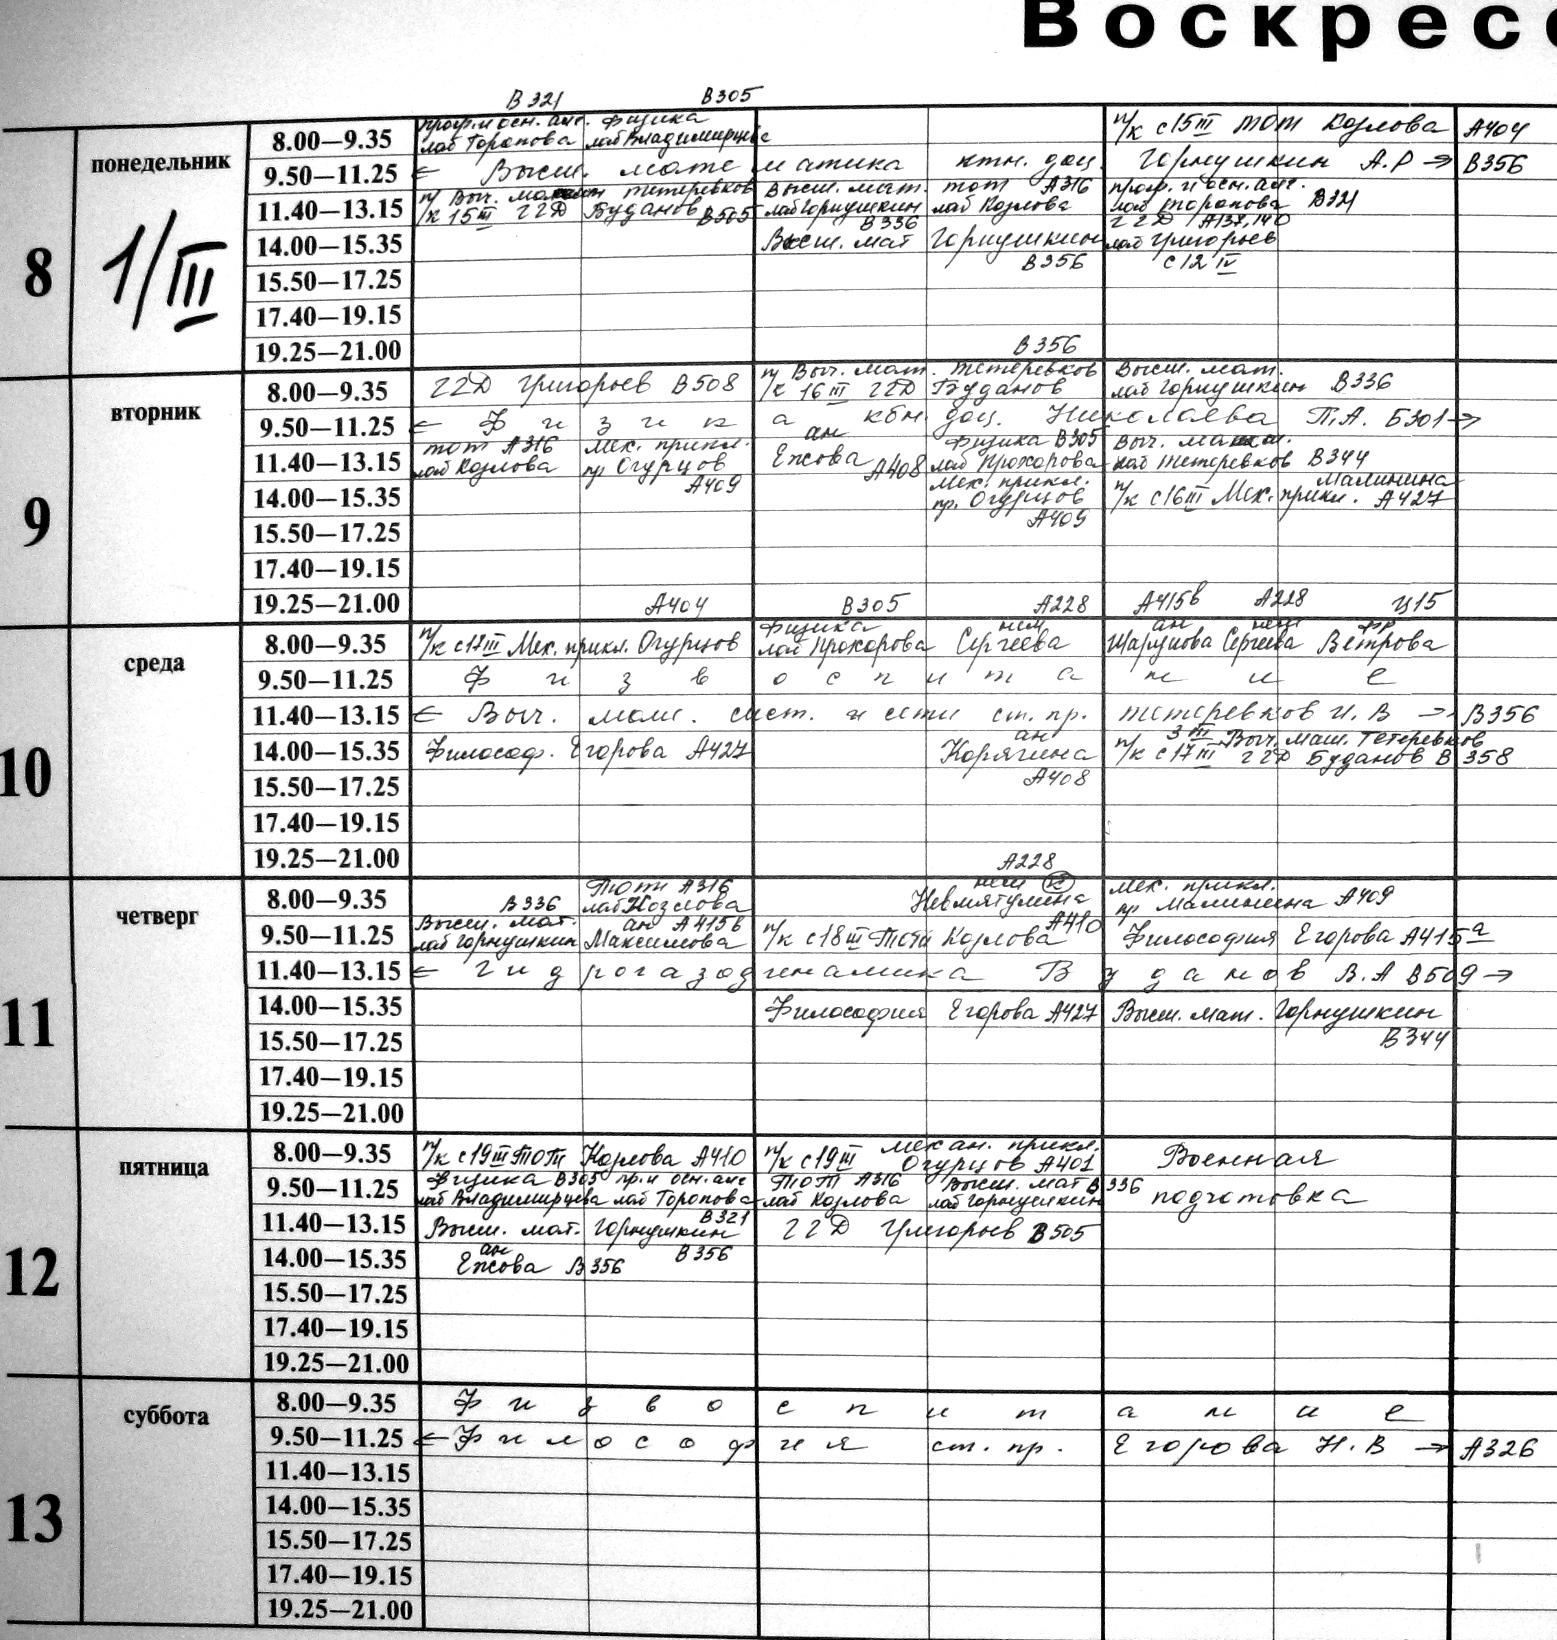 Воскресе
В321 В305
8 понедельник 1/III
8.00—9.35 проф. и осн. лаб Торопова Физика лаб Владимирцева п/к с 15 III ТОТ Козлова А404
9.50—11.25 ← Высш. математика ктн. доц. Горнушкин А.Р → В356
11.40—13.15 п/к 15 III Выч. Тетеревков ГГД Буданов В505 Высш. мат. лаб Горнушкин В336 ТОТ А316 лаб Козлова проф. и осн. лаб Торопова В321
14.00—15.35 Высш. мат Горнушкин В356 ГГД А137,140 лаб Григорьев с 12 IV
15.50—17.25
17.40—19.15
19.25—21.00
В356
9 вторник
8.00—9.35 ГГД Григорьев В508 п/к 16 III Выч. мат. Тетеревков ГГД Буданов Высш. мат. лаб Горнушкин В336
9.50—11.25 ← Физика кбн. доц. Николаева П.А. Б301 →
11.40—13.15 ТОТ А316 лаб Козлова Мех. прикл. пр Огурцов А409 ан Ежова А408 Физика В305 лаб Прохорова Выч. лаб Тетеревков В344
14.00—15.35 Мех. прикл. пр. Огурцов А409 п/к с 16 III Мех. прикл. Малинина А427
15.50—17.25
17.40—19.15
19.25—21.00
А404 В305 А228 А415в А228 Ц15
10 среда
8.00—9.35 п/к с 17 III Мех. прикл. Огурцов Физика лаб Прохорова нем Сергеева ан Шарунова нем Сергеева фр Ветрова
9.50—11.25 Физвоспитание
11.40—13.15 ← Выч. маш. сист. и сети ст. пр. Тетеревков И. В → В356
14.00—15.35 Философ. Егорова А427 ан Корягина А408 п/к 3 III Выч. маш. Тетеревков с 17 III ГГД Буданов В358
15.50—17.25
17.40—19.15
19.25—21.00
А228
11 четверг
8.00—9.35 В336 ТОТ А316 лаб Козлова нем Невмятулина Мех. прикл. пр Малинина А409
9.50—11.25 Высш. мат. лаб Горнушкин ан А415в Максимова п/к с 18 III ТОТ Козлова А410 Философия Егорова А415а
11.40—13.15 ← Гидрогазодинамика Буданов В.А В509 →
14.00—15.35 Философия Егорова А427 Высш. мат. Горнушкин В344
15.50—17.25
17.40—19.15
19.25—21.00
12 пятница
8.00—9.35 п/к с 19 III ТОТ Козлова А410 п/к с 19 III Механ. прикл. Огурцов А401 Военная
9.50—11.25 Физика В305 лаб Владимирцева пр. и осн. лаб Торопова В321 ТОТ А316 лаб Козлова Высш. мат В336 лаб Горнушкин подготовка
11.40—13.15 Высш. мат. Горнушкин В356 ГГД Григорьев В505
14.00—15.35 ан Ежова В356
15.50—17.25
17.40—19.15
19.25—21.00
13 суббота
8.00—9.35 Физвоспитание
9.50—11.25 ← Философия ст. пр. Егорова Н.В → А326
11.40—13.15
14.00—15.35
15.50—17.25
17.40—19.15
19.25—21.00